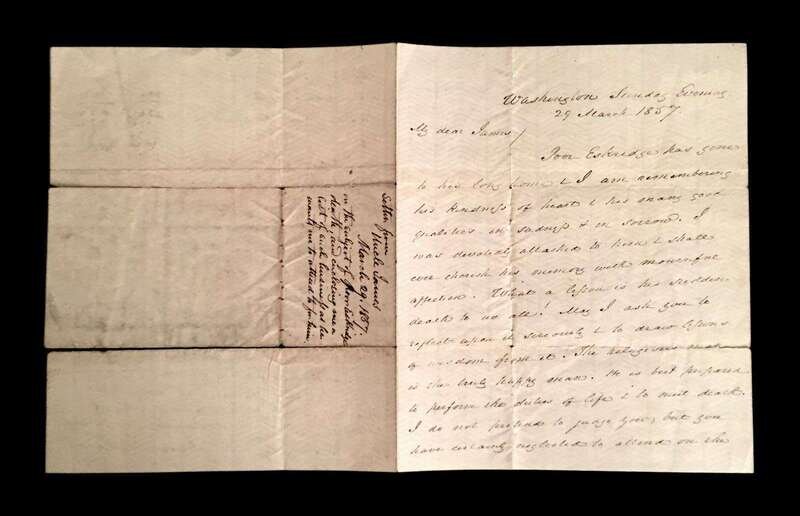 Letter from
Uncle James
March 29. 1857.
on the subject of poor Eskridge
death, and enclosing me a
list of such business as he
wants me to attend to for him
Washington Sunday Evening
29 March 1857.
My dear James/
Poor Eskridge has gone
to his long home & I am remembering
his kindness of heart & his many good
qualities in sadness & in sorrow. I
was devotedly attached to him & shall
ever cherish his memory with mournful
affection. What a lesson is his sudden
death to us all! May I ask you to
reflect upon it seriously & to draw lessons
of wisdom from it. The religious man
is the truly happy man. He is best prepared
to perform the duties of life & to meet death.
I do not pretend to judge you, but you
have certainly neglected to attend on the